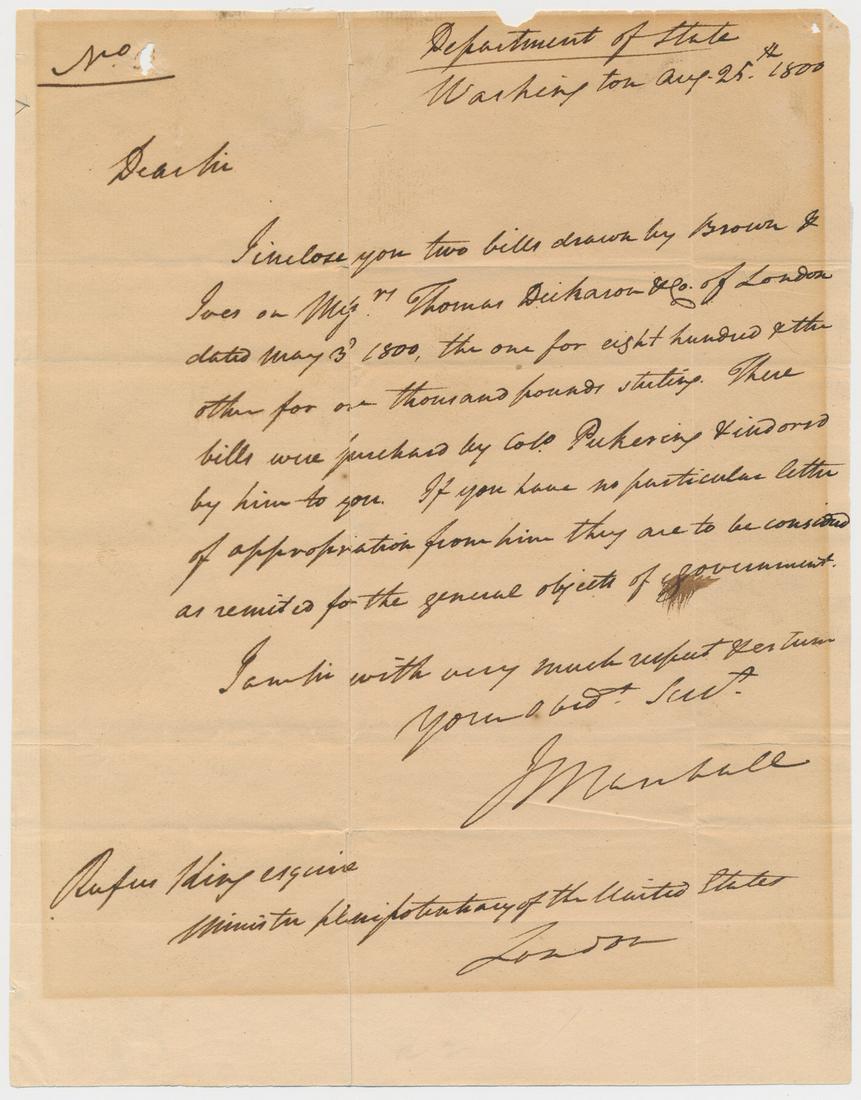 No
Department of State
Washington Aug. 25th 1800
Dear Sir
I inclose you two bills drawn by Brown &
Ives on Messrs. Thomas Dickason & Co. of London
dated May 3d 1800, the one for eight hundred & the
other for one thousand pounds sterling. These
bills were purchasd by Colo. Pickering & indorsd
by him to you. If you have no particular letter
of appropriation from him they are to be considerd
as remited for the general objects of government.
I am Sir with very much respect & esteem
Your Obedt. Servt.
J Marshall
Rufus King esquire
Minister plenipotentiary of the United States
London